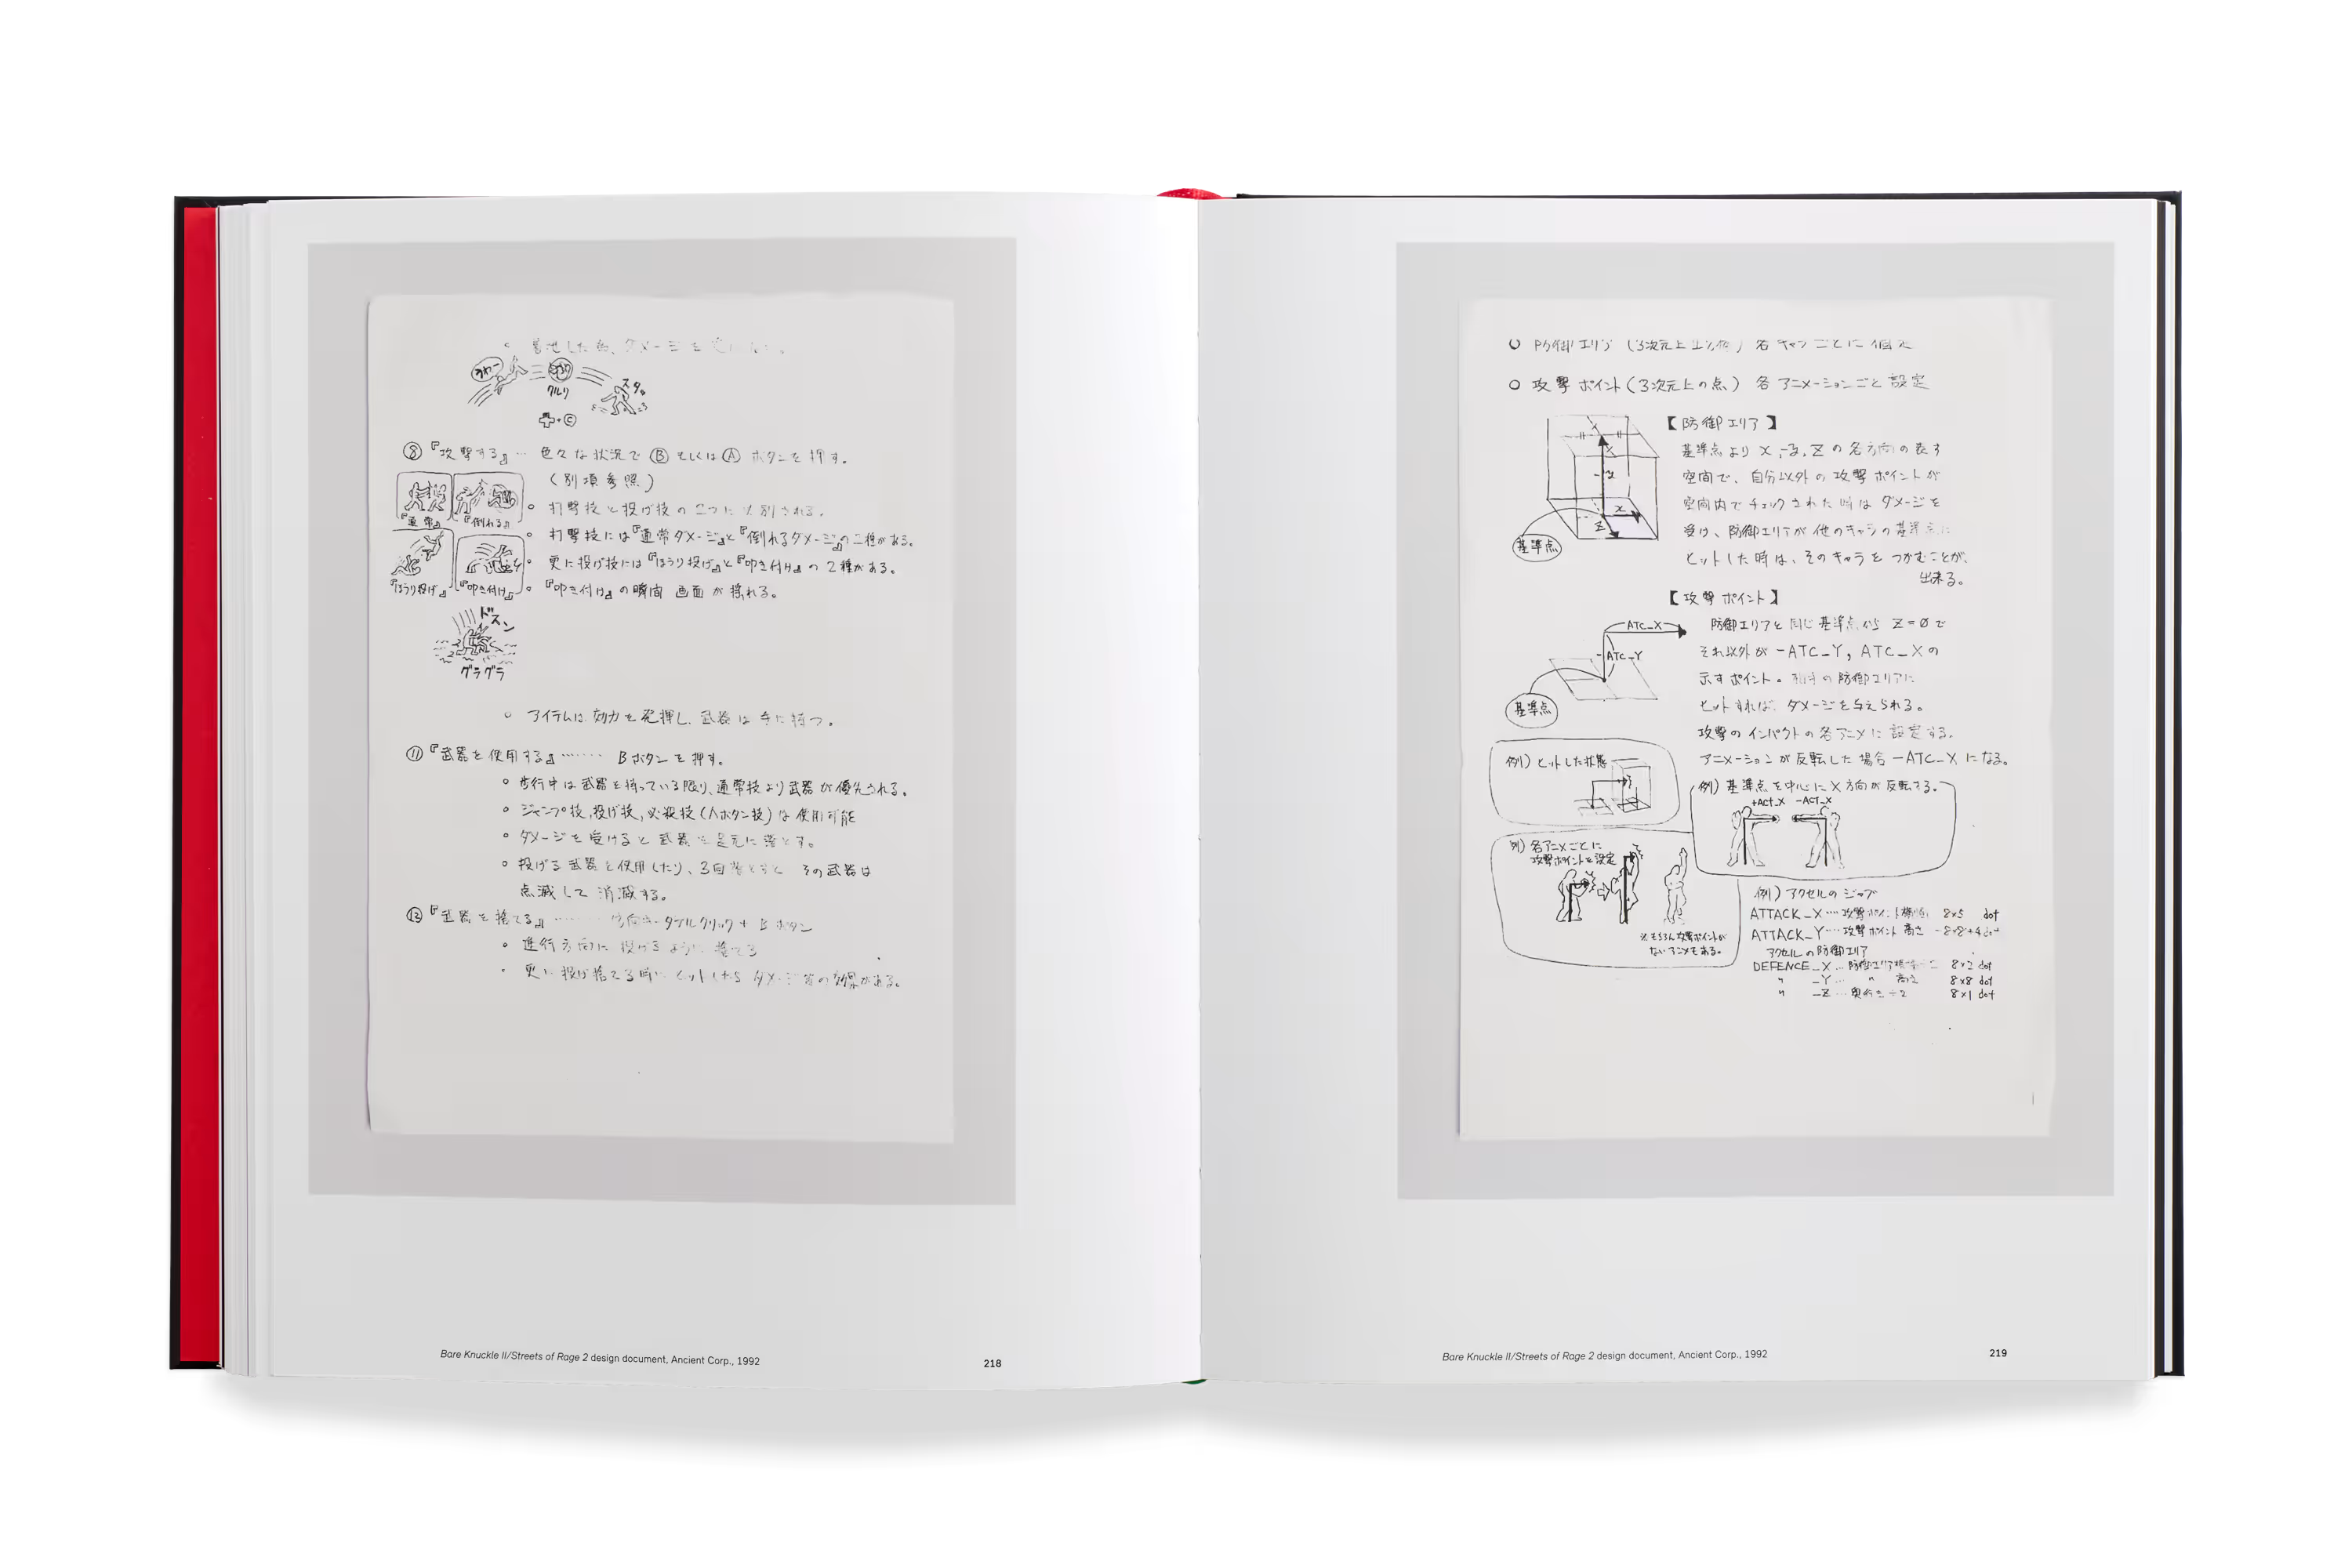 着地した為、ダメージを
うわー
クルリ
スタッ
+・Ⓒ
⑧『攻撃する』… 色々な状況で Ⓑ もしくは Ⓐ ボタンを押す。
(別項参照)
。打撃技と投げ技の二つに大別される。
。打撃技には『通常ダメージ』と『倒れるダメージ』の二種がある。
。更に投げ技には『ほうり投げ』と『叩き付け』の2種がある。
。『叩き付け』の瞬間 画面が揺れる。
『通常』
『倒れる』
『ほうり投げ』
『叩き付け』
ドスン
グラグラ
。アイテムは、効力を発揮し、武器は手に持つ。
⑪『武器を使用する』…… Bボタンを押す。
。歩行中は武器を持っている限り、通常技より武器が優先される。
。ジャンプ技,投げ技,必殺技(Aボタン技)は使用可能
。ダメージを受けると武器を足元に落とす。
。投げる武器を使用したり、3回落とすと その武器は
点滅して消滅する。
⑫『武器を捨てる』…… 方向キーダブルクリック + Bボタン
。進行方向に投げるように捨てる
。更に投げ捨てる時に ヒットしたら ダメージ等の効果がある。
Bare Knuckle II/Streets of Rage 2 design document, Ancient Corp., 1992
218
○ 防御エリア (3次元上 各キャラごとに固定
○ 攻撃ポイント(3次元上の点) 各アニメーションごと設定
【防御エリア】
基準点より X,-Y,Z の各方向の表す
空間で、自分以外の攻撃ポイントが
空間内でチェックされた時はダメージを
受け、防御エリアが他のキャラの基準点に
ヒットした時は、そのキャラをつかむことが、
出来る。
Y
X
Z
基準点
【攻撃ポイント】
防御エリアと同じ基準点から Z=0で
それ以外が -ATC_Y, ATC_X の
示すポイント。相手の防御エリアに
ヒットすれば、ダメージを与えられる。
攻撃のインパクトの各アニメに設定する。
アニメーションが反転した場合 -ATC_X になる。
ATC_X
-ATC_Y
基準点
例) ヒットした状態
例) 基準点を中心にX方向が反転する。
+ACT_X -ACT_X
例) 各アニメごとに
攻撃ポイントを設定
※もちろん攻撃ポイントが
ないアニメもある。
例) アクセルのジャブ
ATTACK_X…攻撃ポイント横幅 8×5 dot
ATTACK_Y…攻撃ポイント高さ -8×8+4dot
アクセルの防御エリア
DEFENCE_X…防御エリア横 8×2 dot
〃 _Y… 〃 高さ 8×8 dot
〃 _Z…奥行き÷2 8×1 dot
Bare Knuckle II/Streets of Rage 2 design document, Ancient Corp., 1992
219